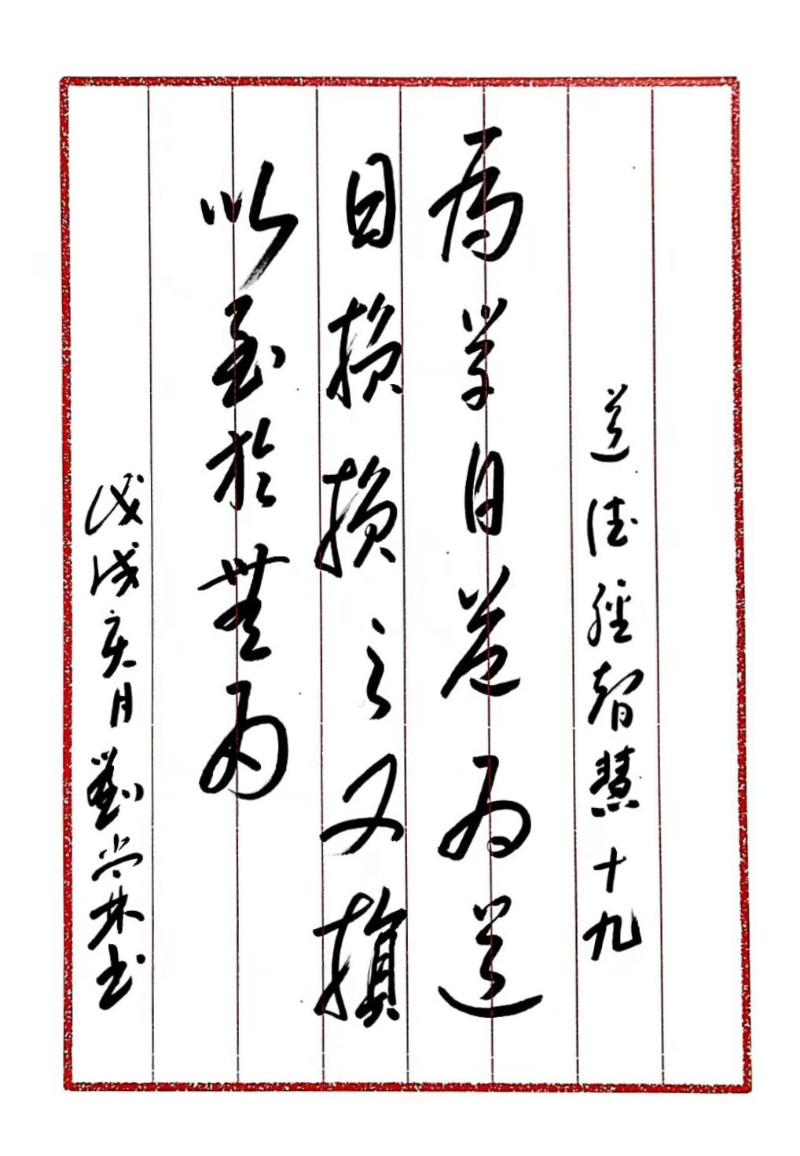 道德經智慧十九
為学日益為道
日損損之又損
以至於無為
戊戌亥月劉崇林书